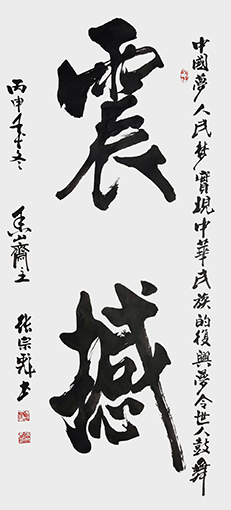 中國夢人民梦實現中華民族的復興夢令世人鼓舞
震撼
丙申年冬
山齋主
张宗书